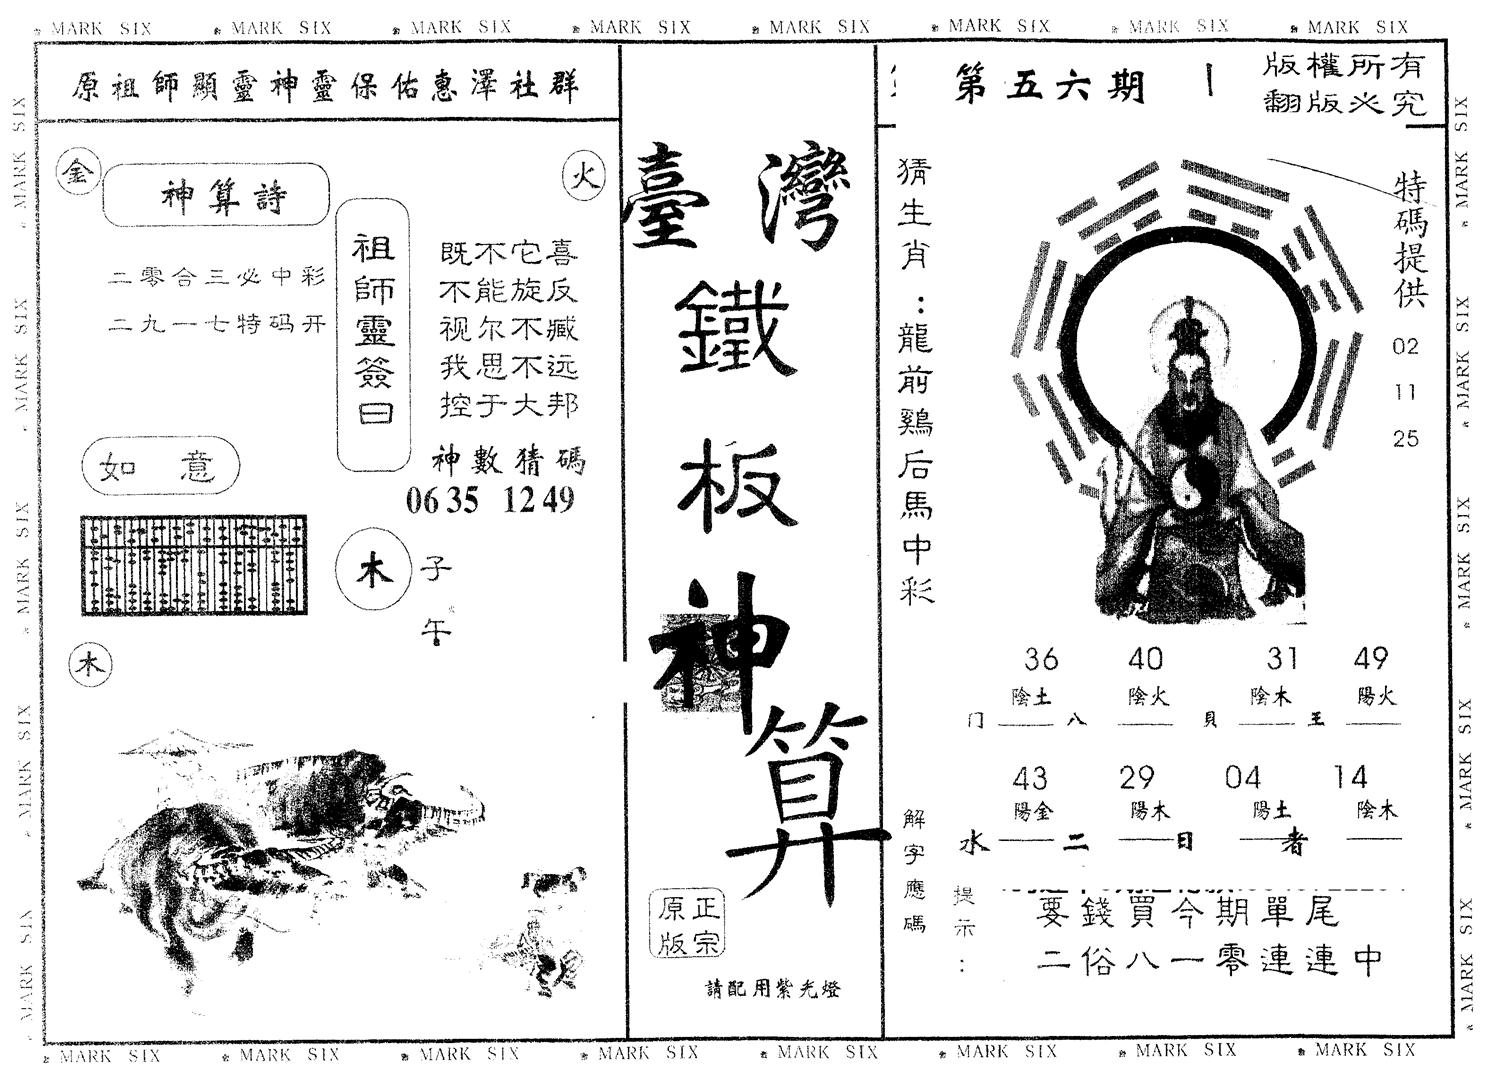 MARK SIX MARK SIX MARK SIX MARK SIX MARK SIX MARK SIX MARK SIX MARK SIX
原祖師顯靈神靈保佑惠澤社群
金
神算詩
火
二零合三必中彩
二九一七特码开
祖師靈簽曰
既不它喜
不能旋反
视尔不臧
我思不远
控于大邦
神數猜碼
06 35 12 49
如意
木
子
午
木
臺灣
鐵
板
神
算
正宗
原版
請配用紫光燈
第五六期
版權所有
翻版必究
猜生肖：龍前鷄后馬中彩
特碼提供
02
11
25
36 40 31 49
陰土 陰火 陰木 陽火
门 八 貝 王
43 29 04 14
陽金 陽木 陽土 陰木
水 二 日 者
解字應碼
提示：
要錢買今期單尾
二俗八一零連連中
MARK SIX MARK SIX MARK SIX MARK SIX MARK SIX MARK SIX MARK SIX MARK SIX
MARK SIX MARK SIX MARK SIX MARK SIX MARK SIX
MARK SIX MARK SIX MARK SIX MARK SIX MARK SIX